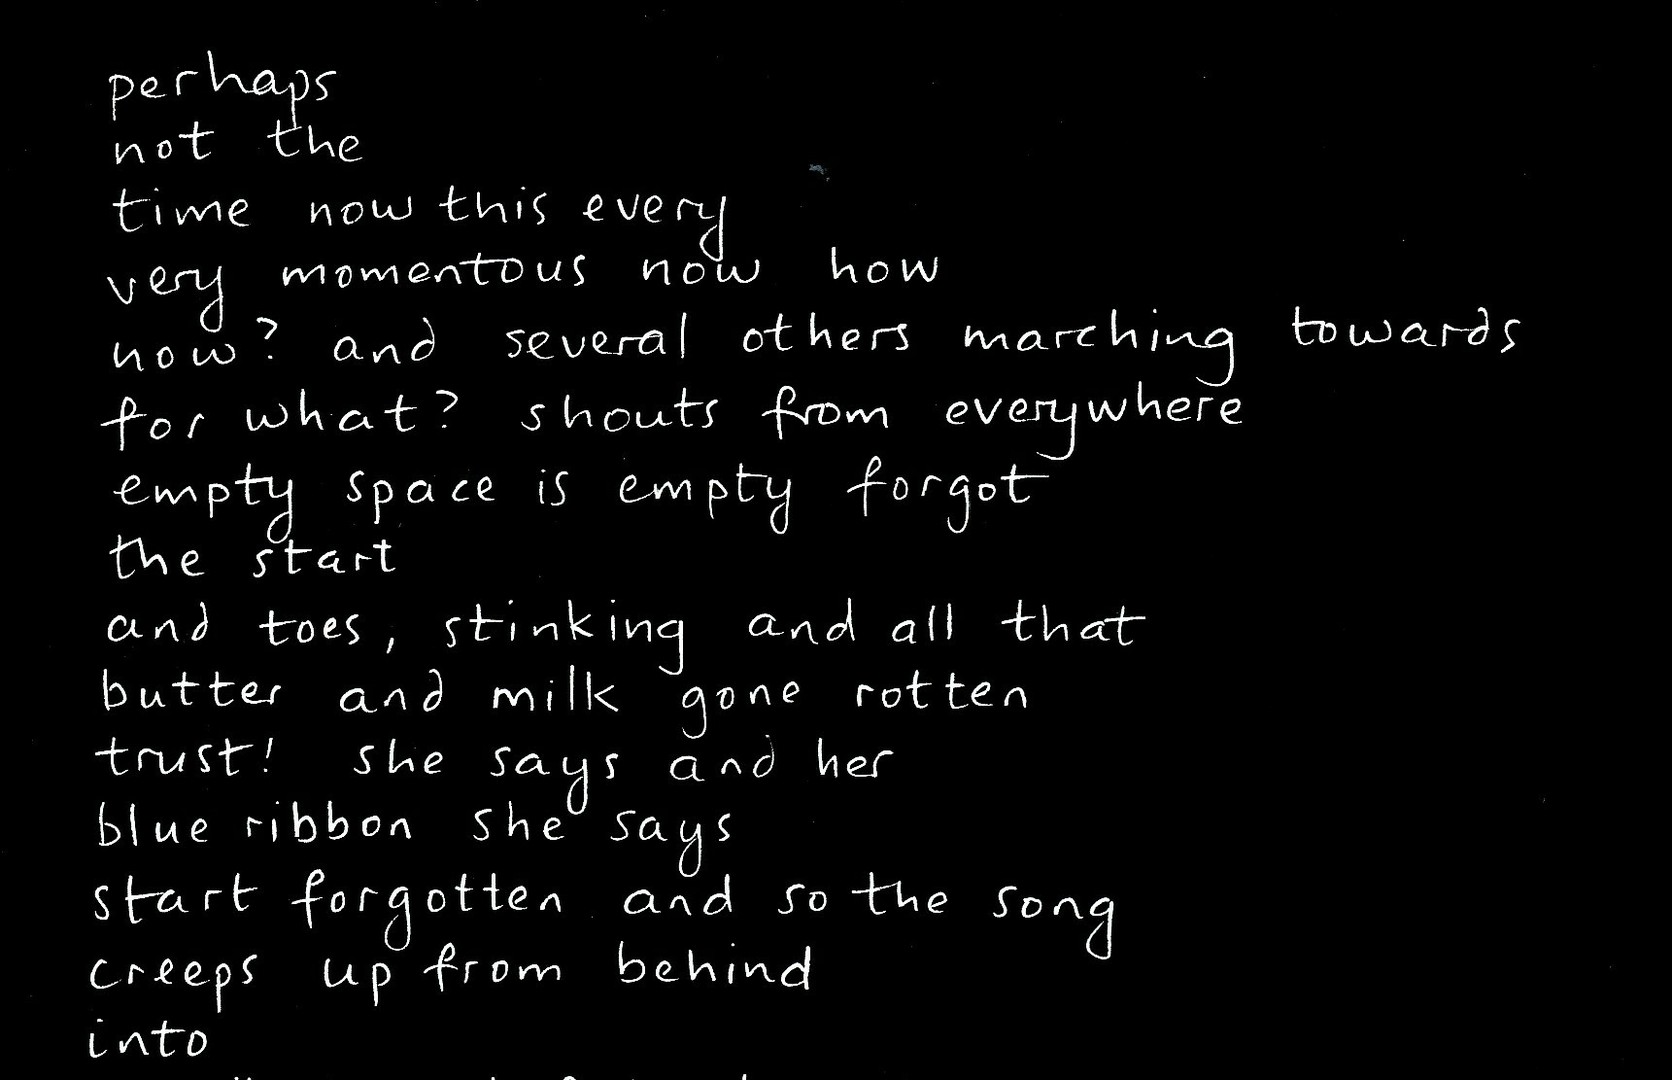 perhaps
not the
time now this every
very momentous now how
now? and several others marching towards
for what? shouts from everywhere
empty space is empty forgot
the start
and toes, stinking and all that
butter and milk gone rotten
trust! she says and her
blue ribbon she says
start forgotten and so the song
creeps up from behind
into